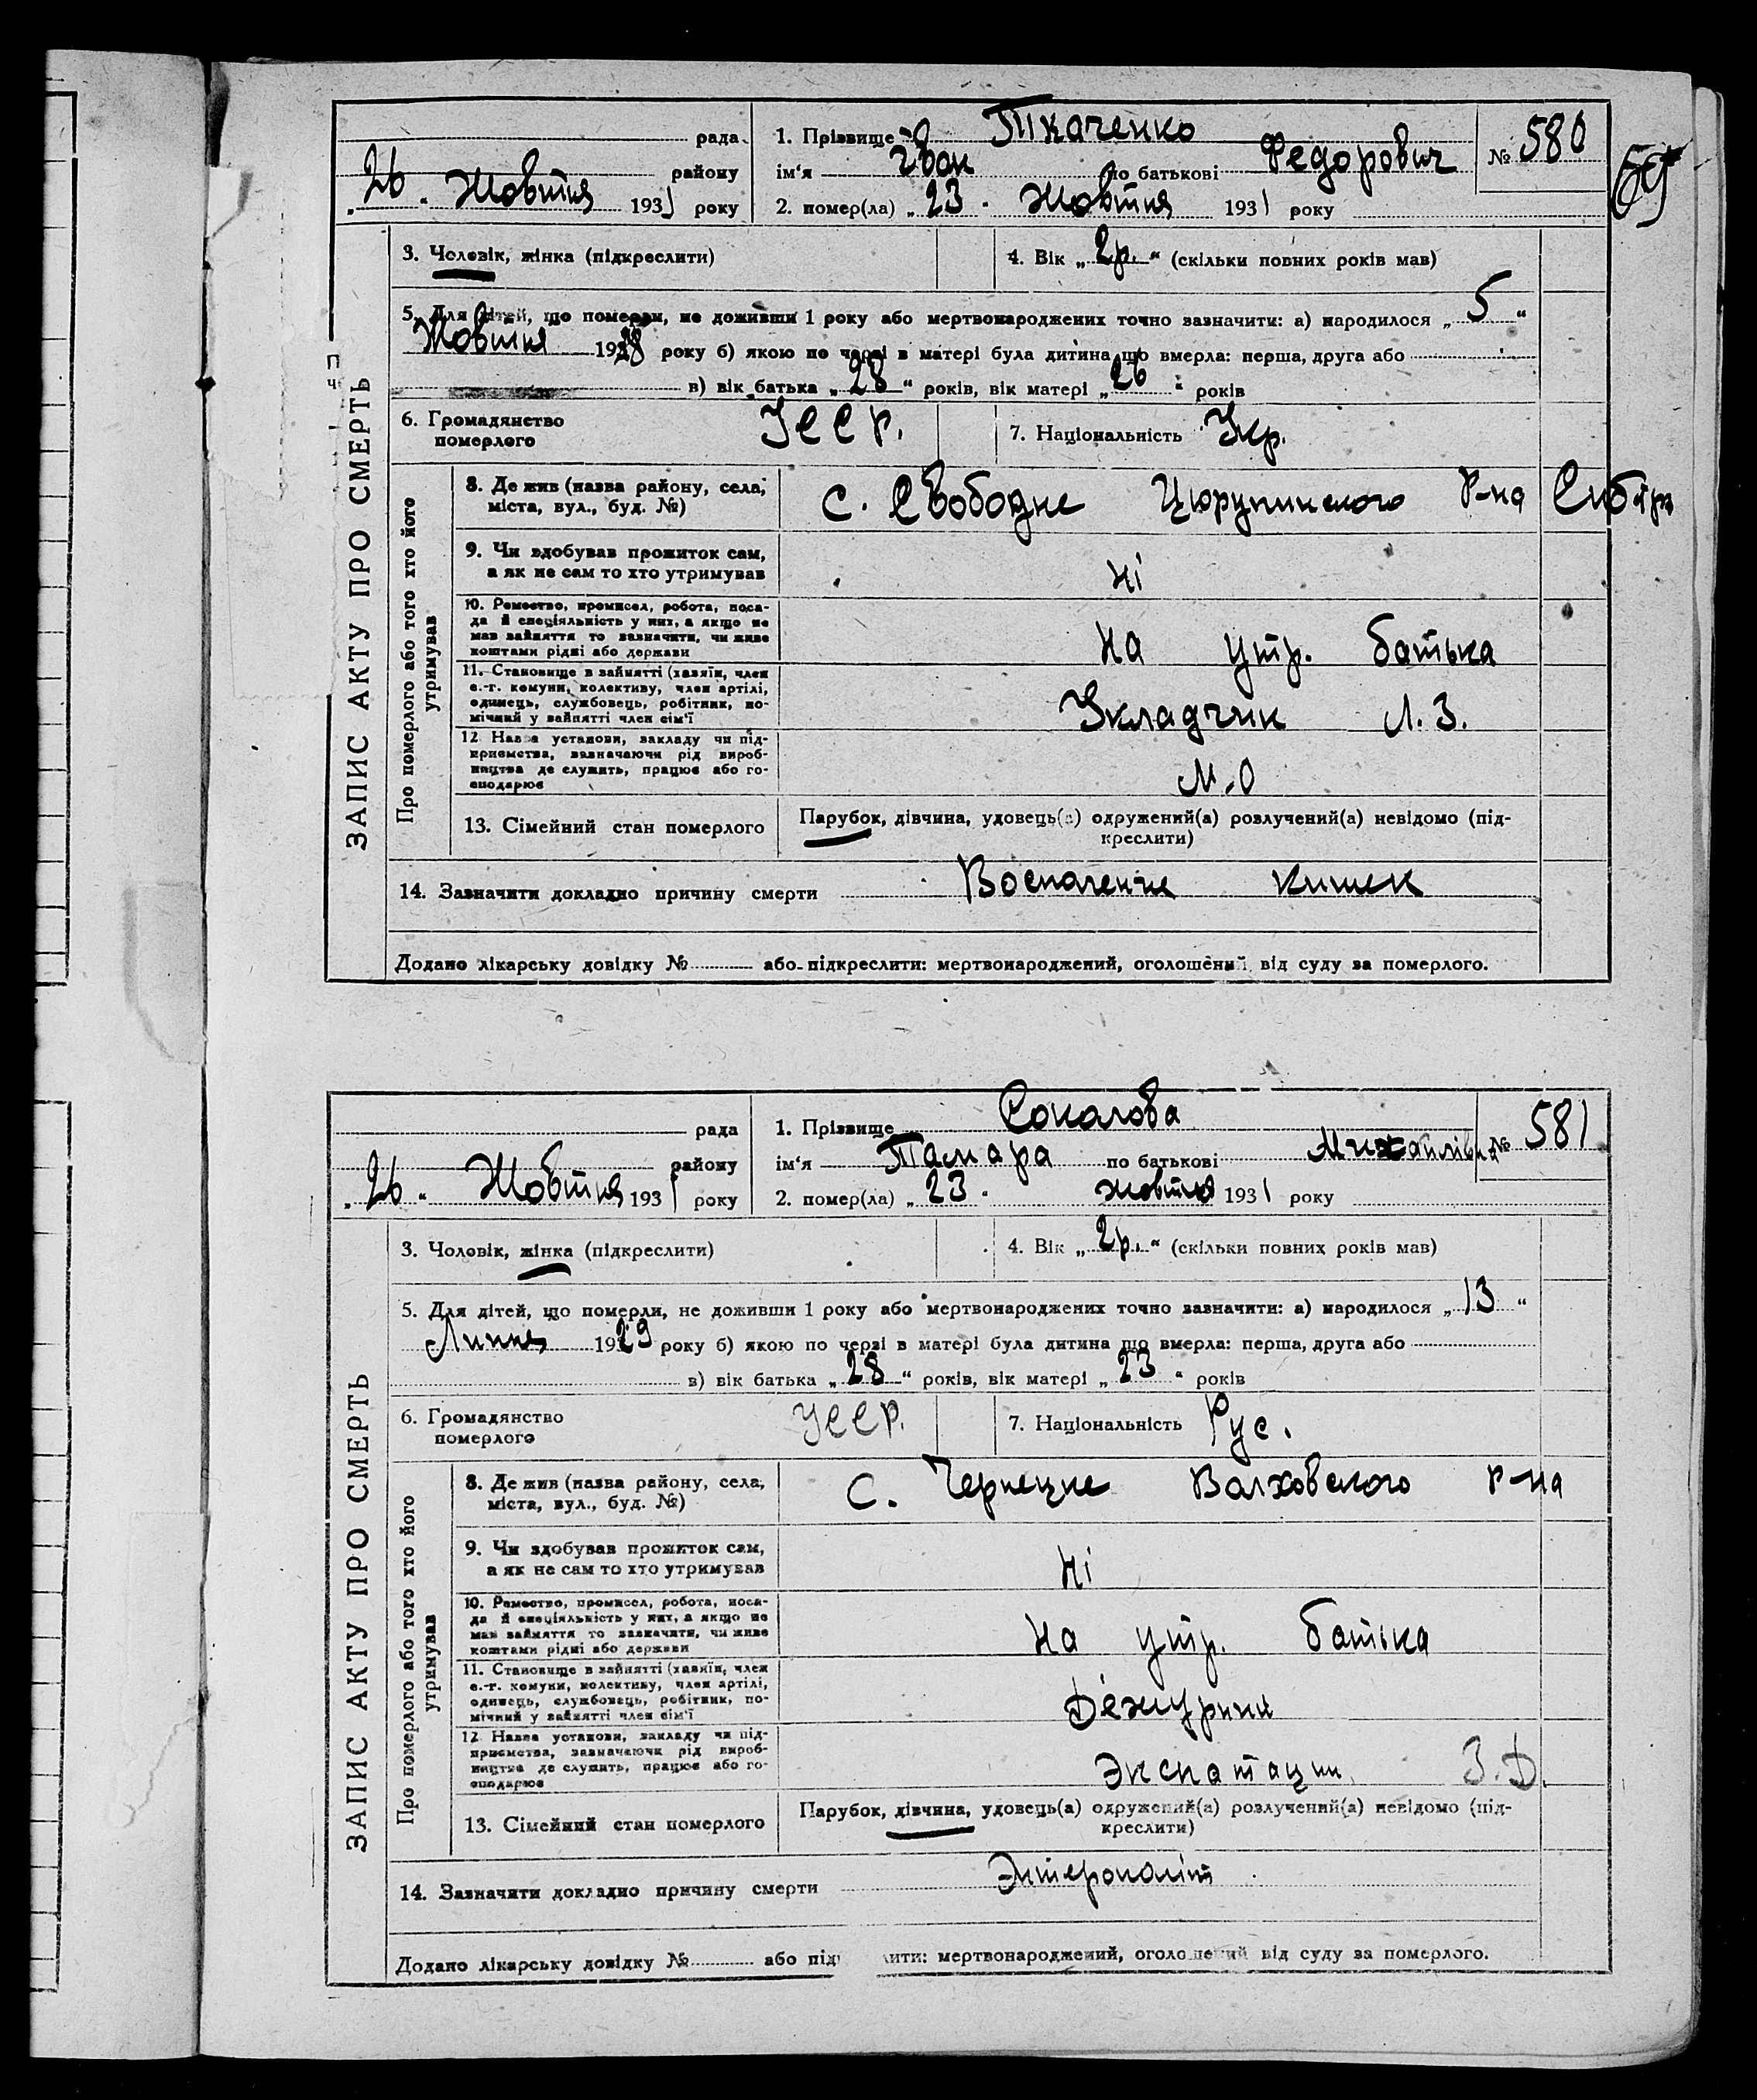 рада
1. Прізвище Ткаченко
№ 580
района
ім'я Іван по батькові Федорович
„26" Жовтня 1931 року
2. помер(ла) „23" Жовтня 1931 року
3. Чоловік, жінка (підкреслити)
4. Вік „2р." (скільки повних років мав)
5. Для дітей, що померли, не доживши 1 року або мертвонароджених точно зазначити: а) народилося „5"
Жовтня 1928 року б) якою по черзі в матері була дитина що вмерла: перша, друга або
в) вік батька „28" років, вік матері „26" років
6. Громадянство
померлого
УССР.
7. Національність Укр.
ЗАПИС АКТУ ПРО СМЕРТЬ
Про померлого або того хто його
утримував
8. Де жив (назва району, села,
міста, вул., буд. №)
с. Свободне Цюрупинского р-на Сибір
9. Чи здобував прожиток сам,
а як не сам то хто утримував
Ні
10. Ремество, промисел, робота, поса-
да й спеціяльність у них, а якщо не
мав зайняття то зазначити, чи живе
коштами рідні або держави
На утр. батька
11. Становище в зайнятті (хазяїн, член
с.-г. комуни, колективу, член артілі,
одинець, службовець, робітник, по-
мічний у зайнятті член сім'ї
Укладчик Л. З.
12 Назва установи, закладу чи під-
приємства, зазначаючи рід вироб-
ництва де служить, працює або го-
сподарює
М.О
13. Сімейний стан померлого
Парубок, дівчина, удовець(а) одружений(а) розлучений(а) невідомо (під-
креслити)
14. Зазначити докладно причину смерти Воспаление кишек
Додано лікарську довідку № або підкреслити: мертвонароджений, оголошений від суду за померлого.
рада
1. Прізвище Сокалова
№ 581
району
ім'я Тамара по батькові Михайлівна
„26" Жовтня 1931 року
2. помер(ла) „23" жовтня 1931 року
3. Чоловік, жінка (підкреслити)
4. Вік „2р." (скільки повних років мав)
5. Для дітей, що померли, не доживши 1 року або мертвонароджених точно зазначити: а) народилося „13"
Липня 1929 року б) якою по черзі в матері була дитина що вмерла: перша, друга або
в) вік батька „28" років, вік матері „23" років
6. Громадянство
померлого
УССР.
7. Національність Рус.
ЗАПИС АКТУ ПРО СМЕРТЬ
Про померлого або того хто його
утримував
8. Де жив (назва району, села,
міста, вул., буд. №)
с. Чернецне Валховского р-на
9. Чи здобував прожиток сам,
а як не сам то хто утримував
Ні
10. Ремество, промисел, робота, поса-
да й спеціяльність у них, а якщо не
мав зайняття то зазначити, чи живе
коштами рідні або держави
На утр. батька
11. Становище в зайнятті (хазяїн, член
с.-г. комуни, колективу, член артілі,
одинець, службовець, робітник, по-
мічний у зайнятті член сім'ї
Дежурний
12 Назва установи, закладу чи під-
приємства, зазначаючи рід вироб-
ництва де служить, працює або го-
сподарює
Экспатации З.Д.
13. Сімейний стан померлого
Парубок, дівчина, удовець(а) одружений(а) розлучений(а) невідомо (під-
креслити)
14. Зазначити докладно причину смерти Энтероколіт
Додано лікарську довідку № або під лити: мертвонароджений, оголошений від суду за померлого.